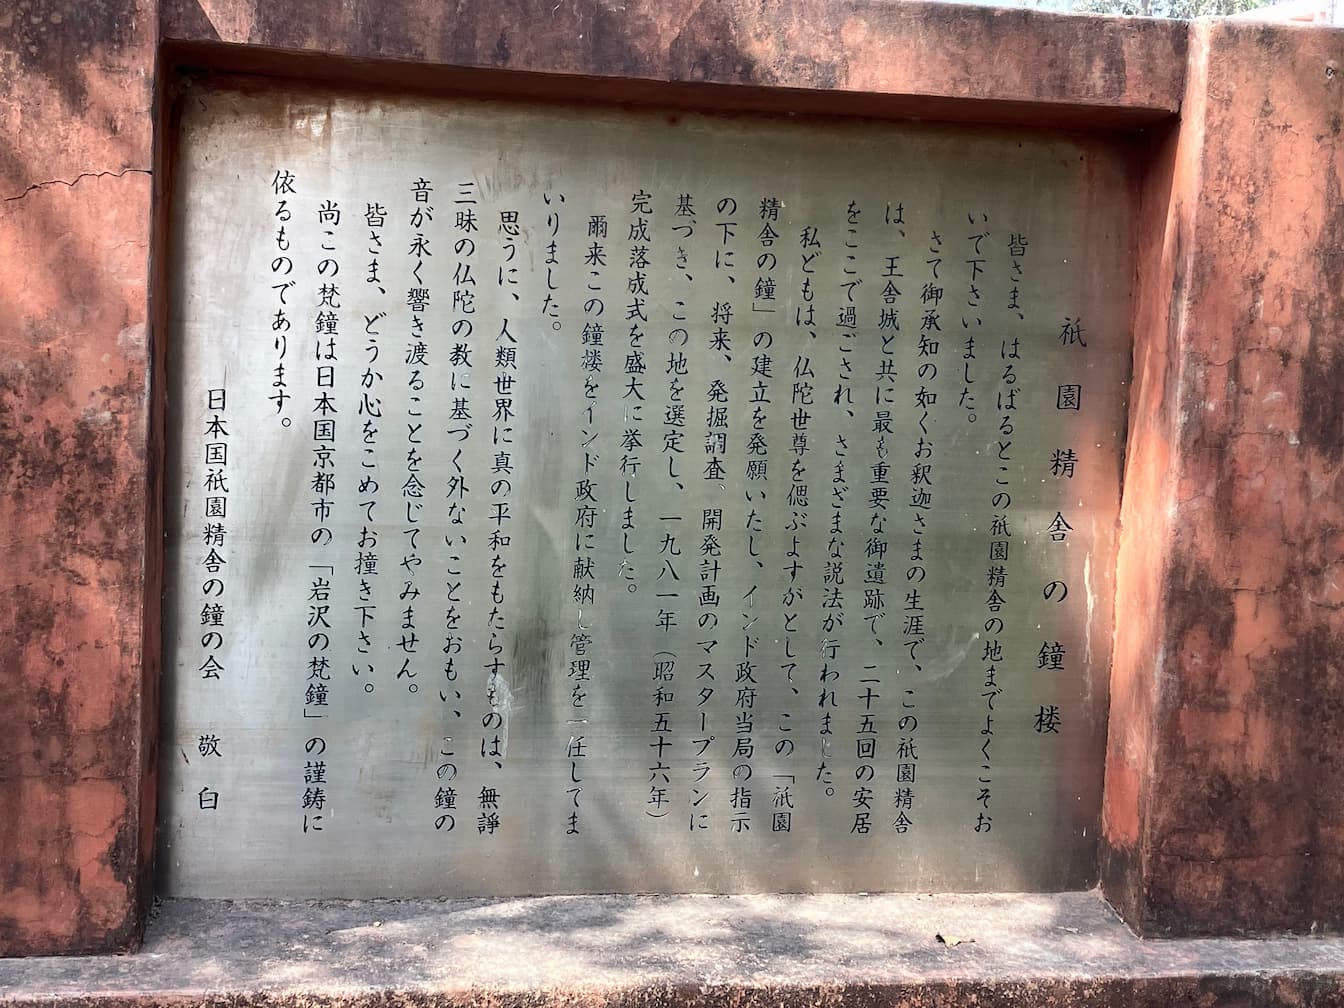 祇園精舎の鐘楼
皆さま、はるばるとこの祇園精舎の地までよくこそお
いで下さいました。
さて御承知の如くお釈迦さまの生涯で、この祇園精舎
は、王舎城と共に最も重要な御遺跡で、二十五回の安居
をここで過ごされ、さまざまな説法が行われました。
私どもは、仏陀世尊を偲ぶよすがとして、この「祇園
精舎の鐘」の建立を発願いたし、インド政府当局の指示
の下に、将来、発掘調査、開発計画のマスタープランに
基づき、この地を選定し、一九八一年（昭和五十六年）
完成落成式を盛大に挙行しました。
爾来この鐘楼をインド政府に献納し管理を一任してま
いりました。
思うに、人類世界に真の平和をもたらすものは、無諍
三昧の仏陀の教に基づく外ないことをおもい、この鐘の
音が永く響き渡ることを念じてやみません。
皆さま、どうか心をこめてお撞き下さい。
尚この梵鐘は日本国京都市の「岩沢の梵鐘」の謹鋳に
依るものであります。
日本国祇園精舎の鐘の会　敬白